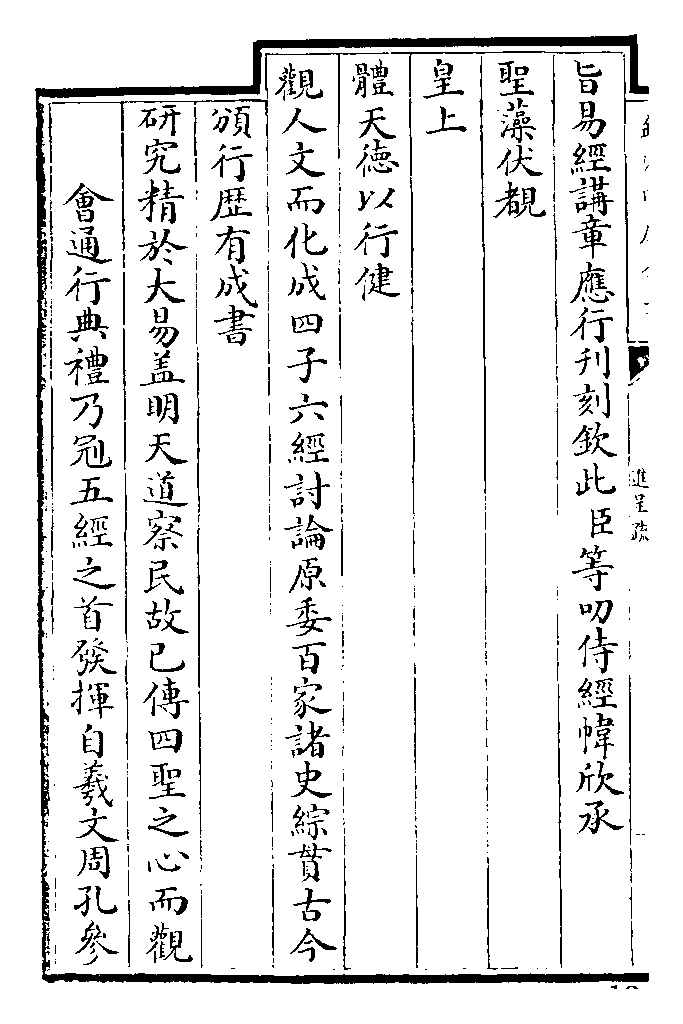 旨易經講章應行刊刻欽此臣等叨侍經幃欣承
聖藻伏覩
皇上
體天德以行健
觀人文而化成四子六經討論原委百家諸史綜貫古今
頒行歴有成書
研究精於大易盖明天道察民故已傳四聖之心而觀
會通行典禮乃冠五經之首發揮自羲文周孔參
進呈疏